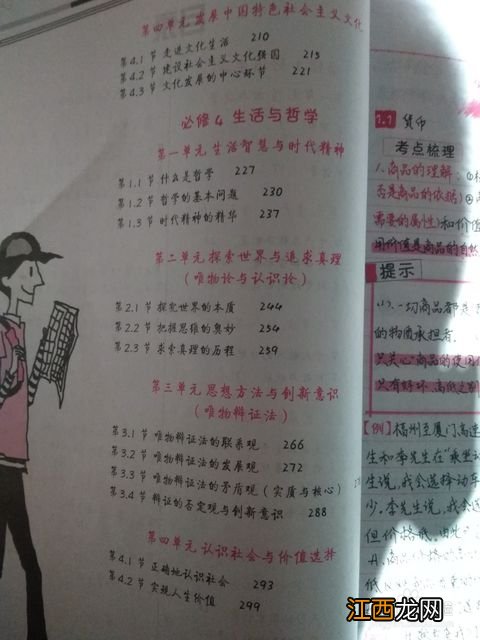 第四单元 发展中国特色社会主义文化
第4.1节 走进文化生活 210
第4.2节 建设社会主义文化强国 215
第4.3节 文化发展的中心环节 221
必修4 生活与哲学
第一单元 生活智慧与时代精神
第1.1节 什么是哲学 227
第1.2节 哲学的基本问题 230
第1.3节 时代精神的精华 237
第二单元 探索世界与追求真理
(唯物论与认识论)
第2.1节 探究世界的本质 244
第2.2节 把握思维的奥妙 254
第2.3节 求索真理的历程 259
第三单元 思想方法与创新意识
(唯物辩证法)
第3.1节 唯物辩证法的联系观 266
第3.2节 唯物辩证法的发展观 272
第3.3节 唯物辩证法的矛盾观(实质与核心)
第3.4节 辩证的否定观与创新意识 288
第四单元 认识社会与价值选择
第4.1节 正确地认识社会 293
第4.2节 实现人生价值 299
1.1 货币
考点梳理
1.商品的理解:
否是商品的依据)
需要的属性)和价值
用价值是商品的自然
提示
(1)一切商品都是
的物质承担者.
只关心商品的使用价
只有好坏、高低之别
【例】福州至厦门高速
生和李先生在"乘坐
生说,我会选择动车
少,李先生说,我会选
但价格低,由此
江西龙网